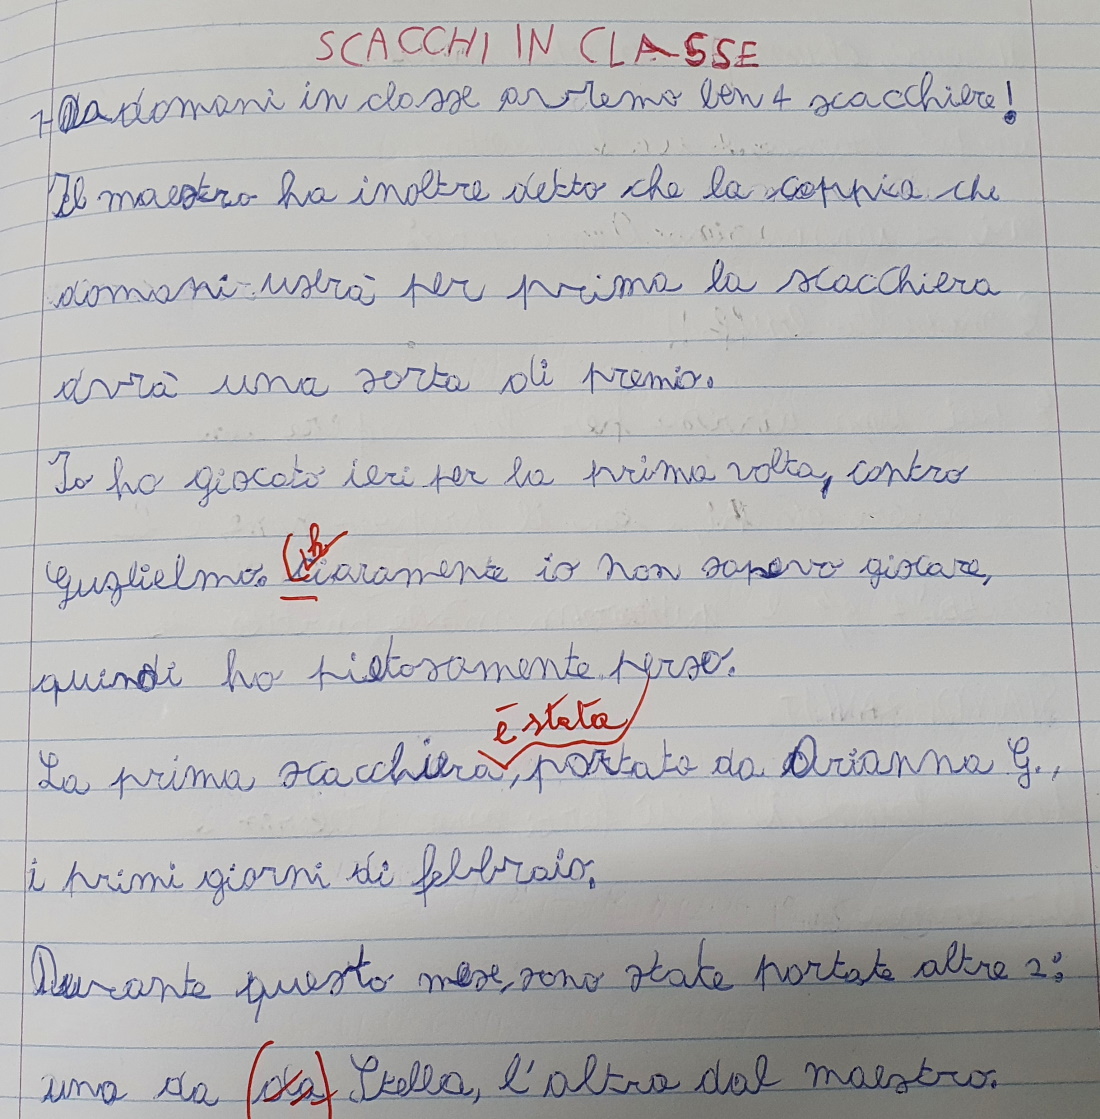 SCACCHI IN CLASSE
Da domani in classe avremo ben 4 scacchiere!
Il maestro ha inoltre detto che la coppia che
domani userà per prima la scacchiera
avrà una sorta di premio.
Io ho giocato ieri per la prima volta, contro
h
Guglielmo. Ciaramente io non sapevo giocare,
quindi ho pietosamente perso.
è stata
La prima scacchiera, portata da Arianna G.,
i primi giorni di febbraio.
Durante questo mese, sono state portate altre 2:
una da (da) Stella, l'altra dal maestro.